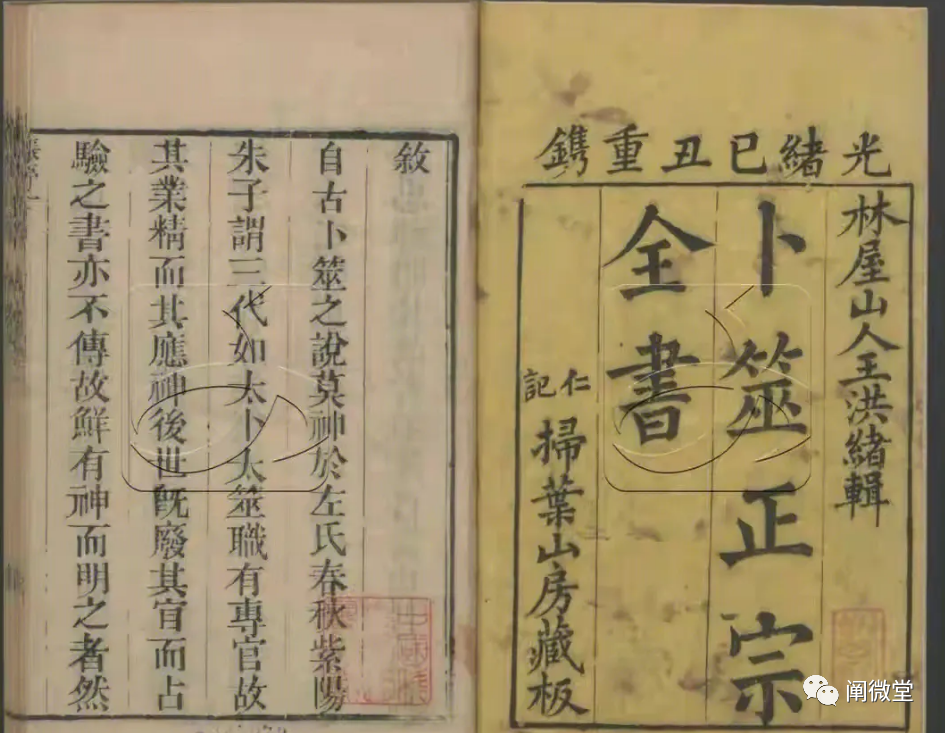 光緒己丑重鐫
林屋山人王洪緒輯
卜筮正宗
全書
仁記
掃葉山房藏板
敘
自古卜筮之說莫神於左氏春秋紫陽
朱子謂三代如太卜太筮職有專官故
其業精而其應神後世旣廢其官而占
驗之書亦不傳故鮮有神而明之者然
阐微堂